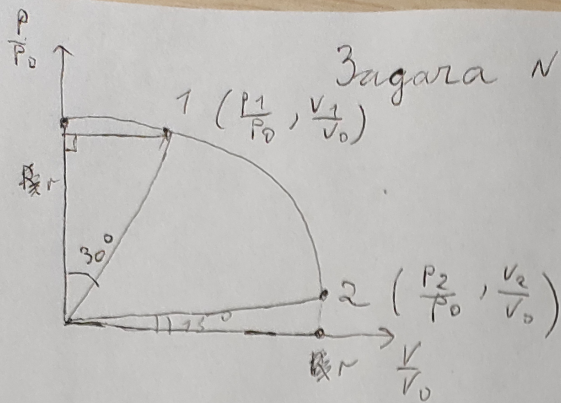 P/P₀
Задача N
1 (P1/P0, V1/V0)
r
30°
2 (P2/P0, V2/V0)
15°
r
V/V₀